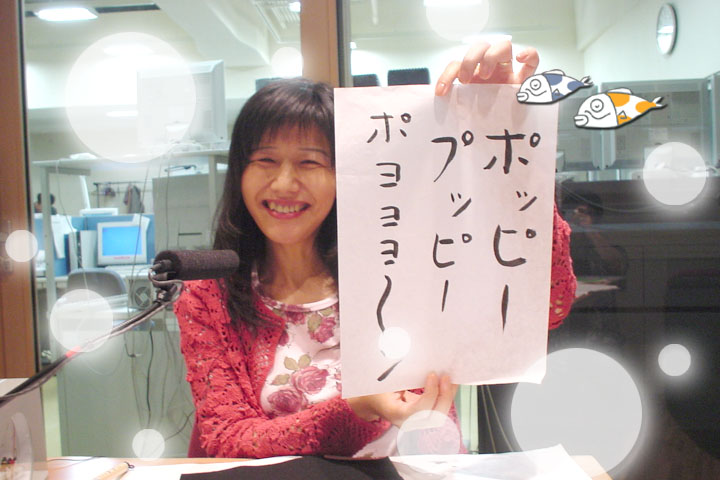 ポッピー
プッピー
ポヨヨヨ〜ン